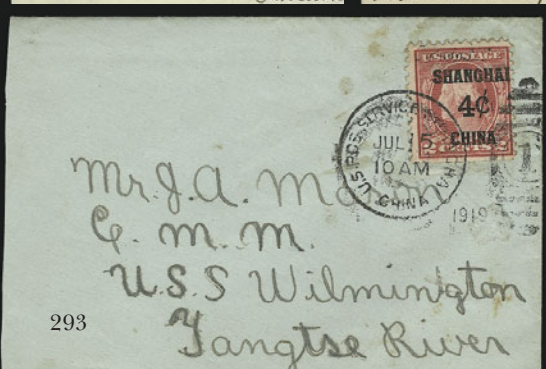 U.S. POSTAGE
SHANGHAI
4¢
CHINA
2 CENTS 2
U.S. POSTAL SERVICE SHANGHAI
JUL 5
10 AM
CHINA
1919
1
Mr. J. A. Morton
C. M. M.
U.S.S Wilmington
Yangtse River
293